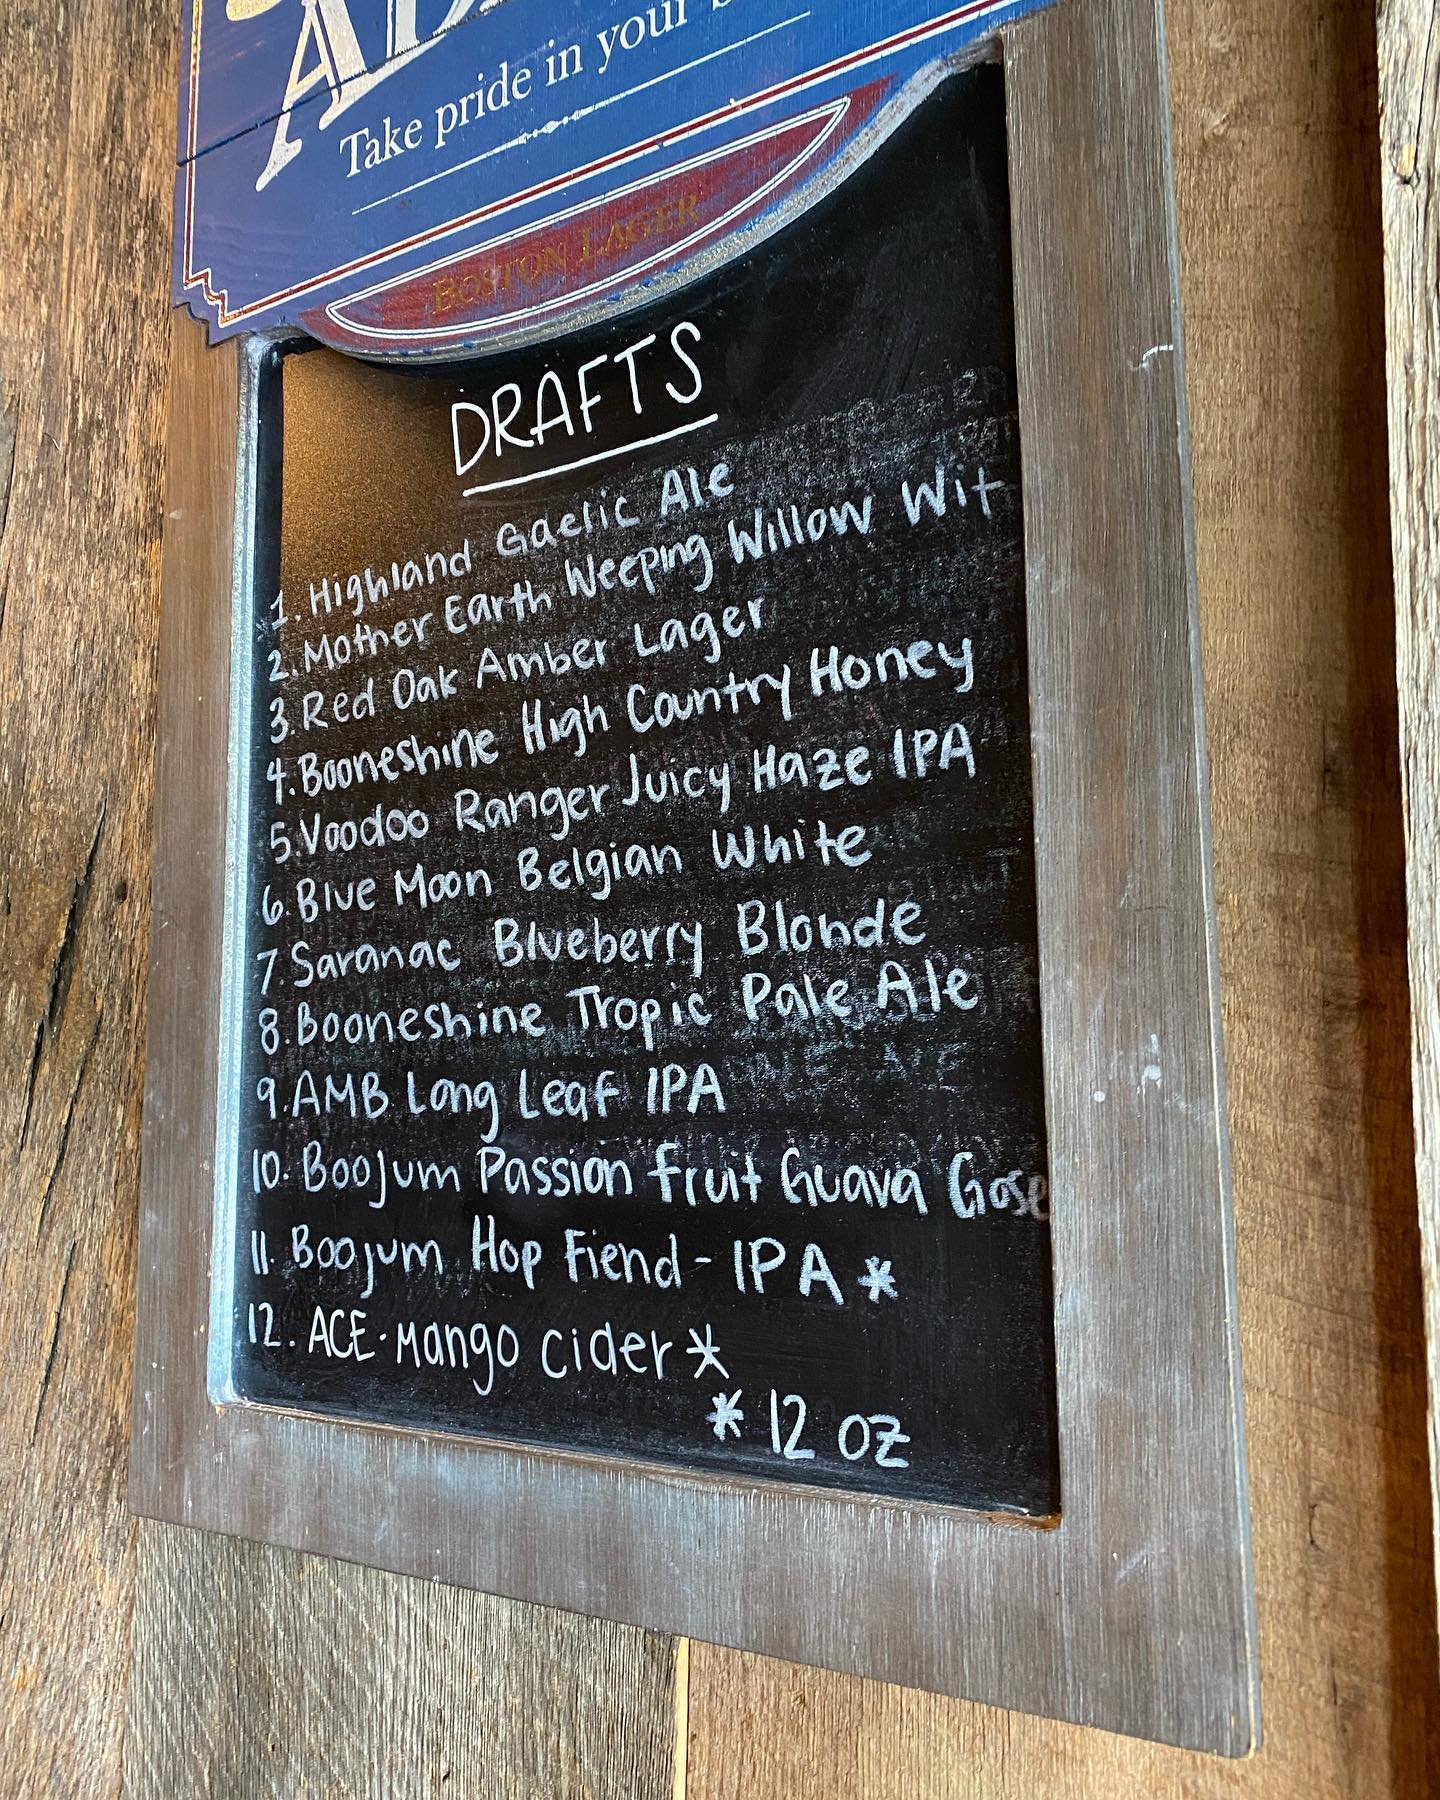 Take pride in your
BOSTON LAGER
DRAFTS
1. Highland Gaelic Ale
2. Mother Earth Weeping Willow Wit
3. Red Oak Amber Lager
4. Booneshine High Country Honey
5. Voodoo Ranger Juicy Haze IPA
6. Blue Moon Belgian White
7. Saranac Blueberry Blonde
8. Booneshine Tropic Pale Ale
9. AMB Long Leaf IPA
10. Boojum Passion fruit Guava Gose
11. Boojum Hop Fiend - IPA *
12. ACE - Mango Cider *
* 12 oz